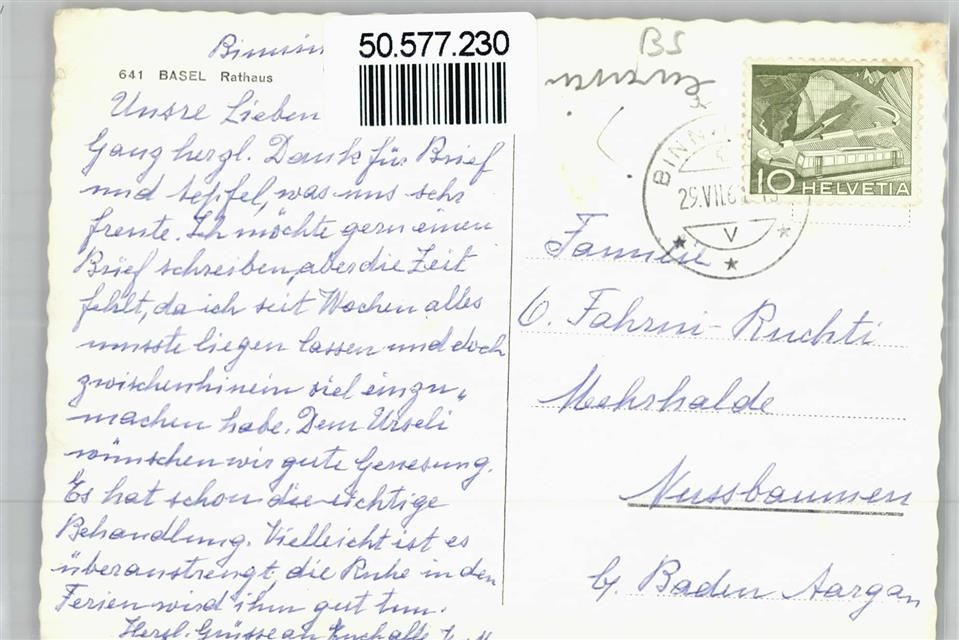 50.577.230
641 BASEL Rathaus
Unsre Lieben
Ganz herzl. Dank für Brief
und Aepfel, was uns sehr
freute. Ich möchte gern einen
Brief schreiben, aber die Zeit
fehlt, da ich seit Wochen alles
musste liegen lassen und doch
zwischenhinein viel einzu„
machen habe. Dem Urseli
wünschen wir gute Genesung.
Es hat schon die richtige
Behandlung. Vielleicht ist es
überanstrengt, die Ruhe in den
Ferien wird ihm gut tun.
Herzl. Grüsse an Euch alle
BS
BINN
29.VII.6
V
10 HELVETIA
Familie
Fahrni-Ruchti
Mehrhalde
Nussbaumen
b/ Baden Aargau